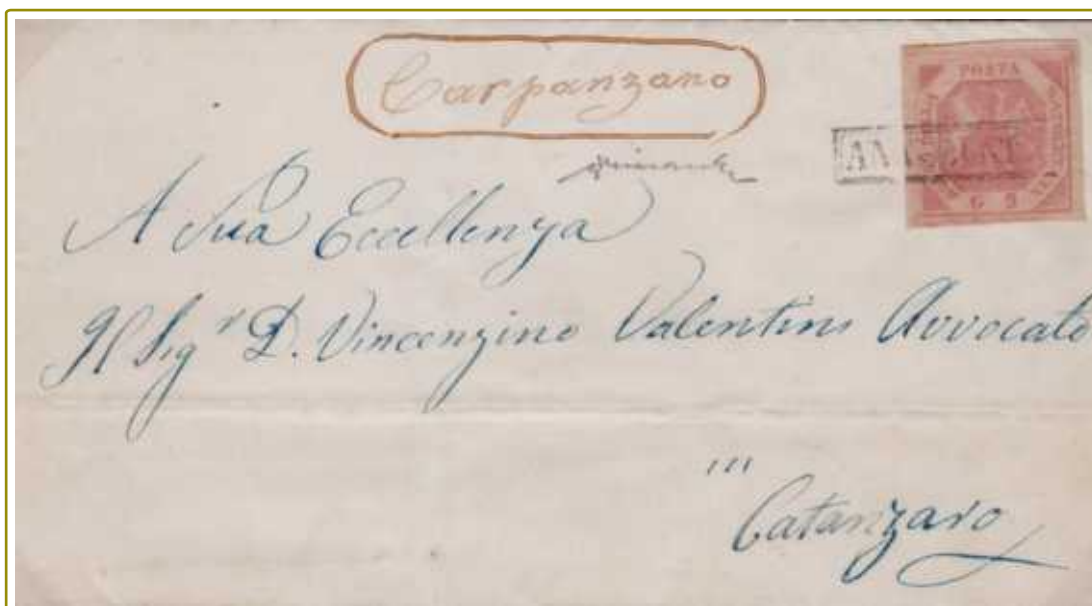 Carpanzano
POSTA
ANNULLATO
G 2
A Sua Eccellenza
Il Sig.r D. Vincenzino Valentini Avvocato
in
Catanzaro